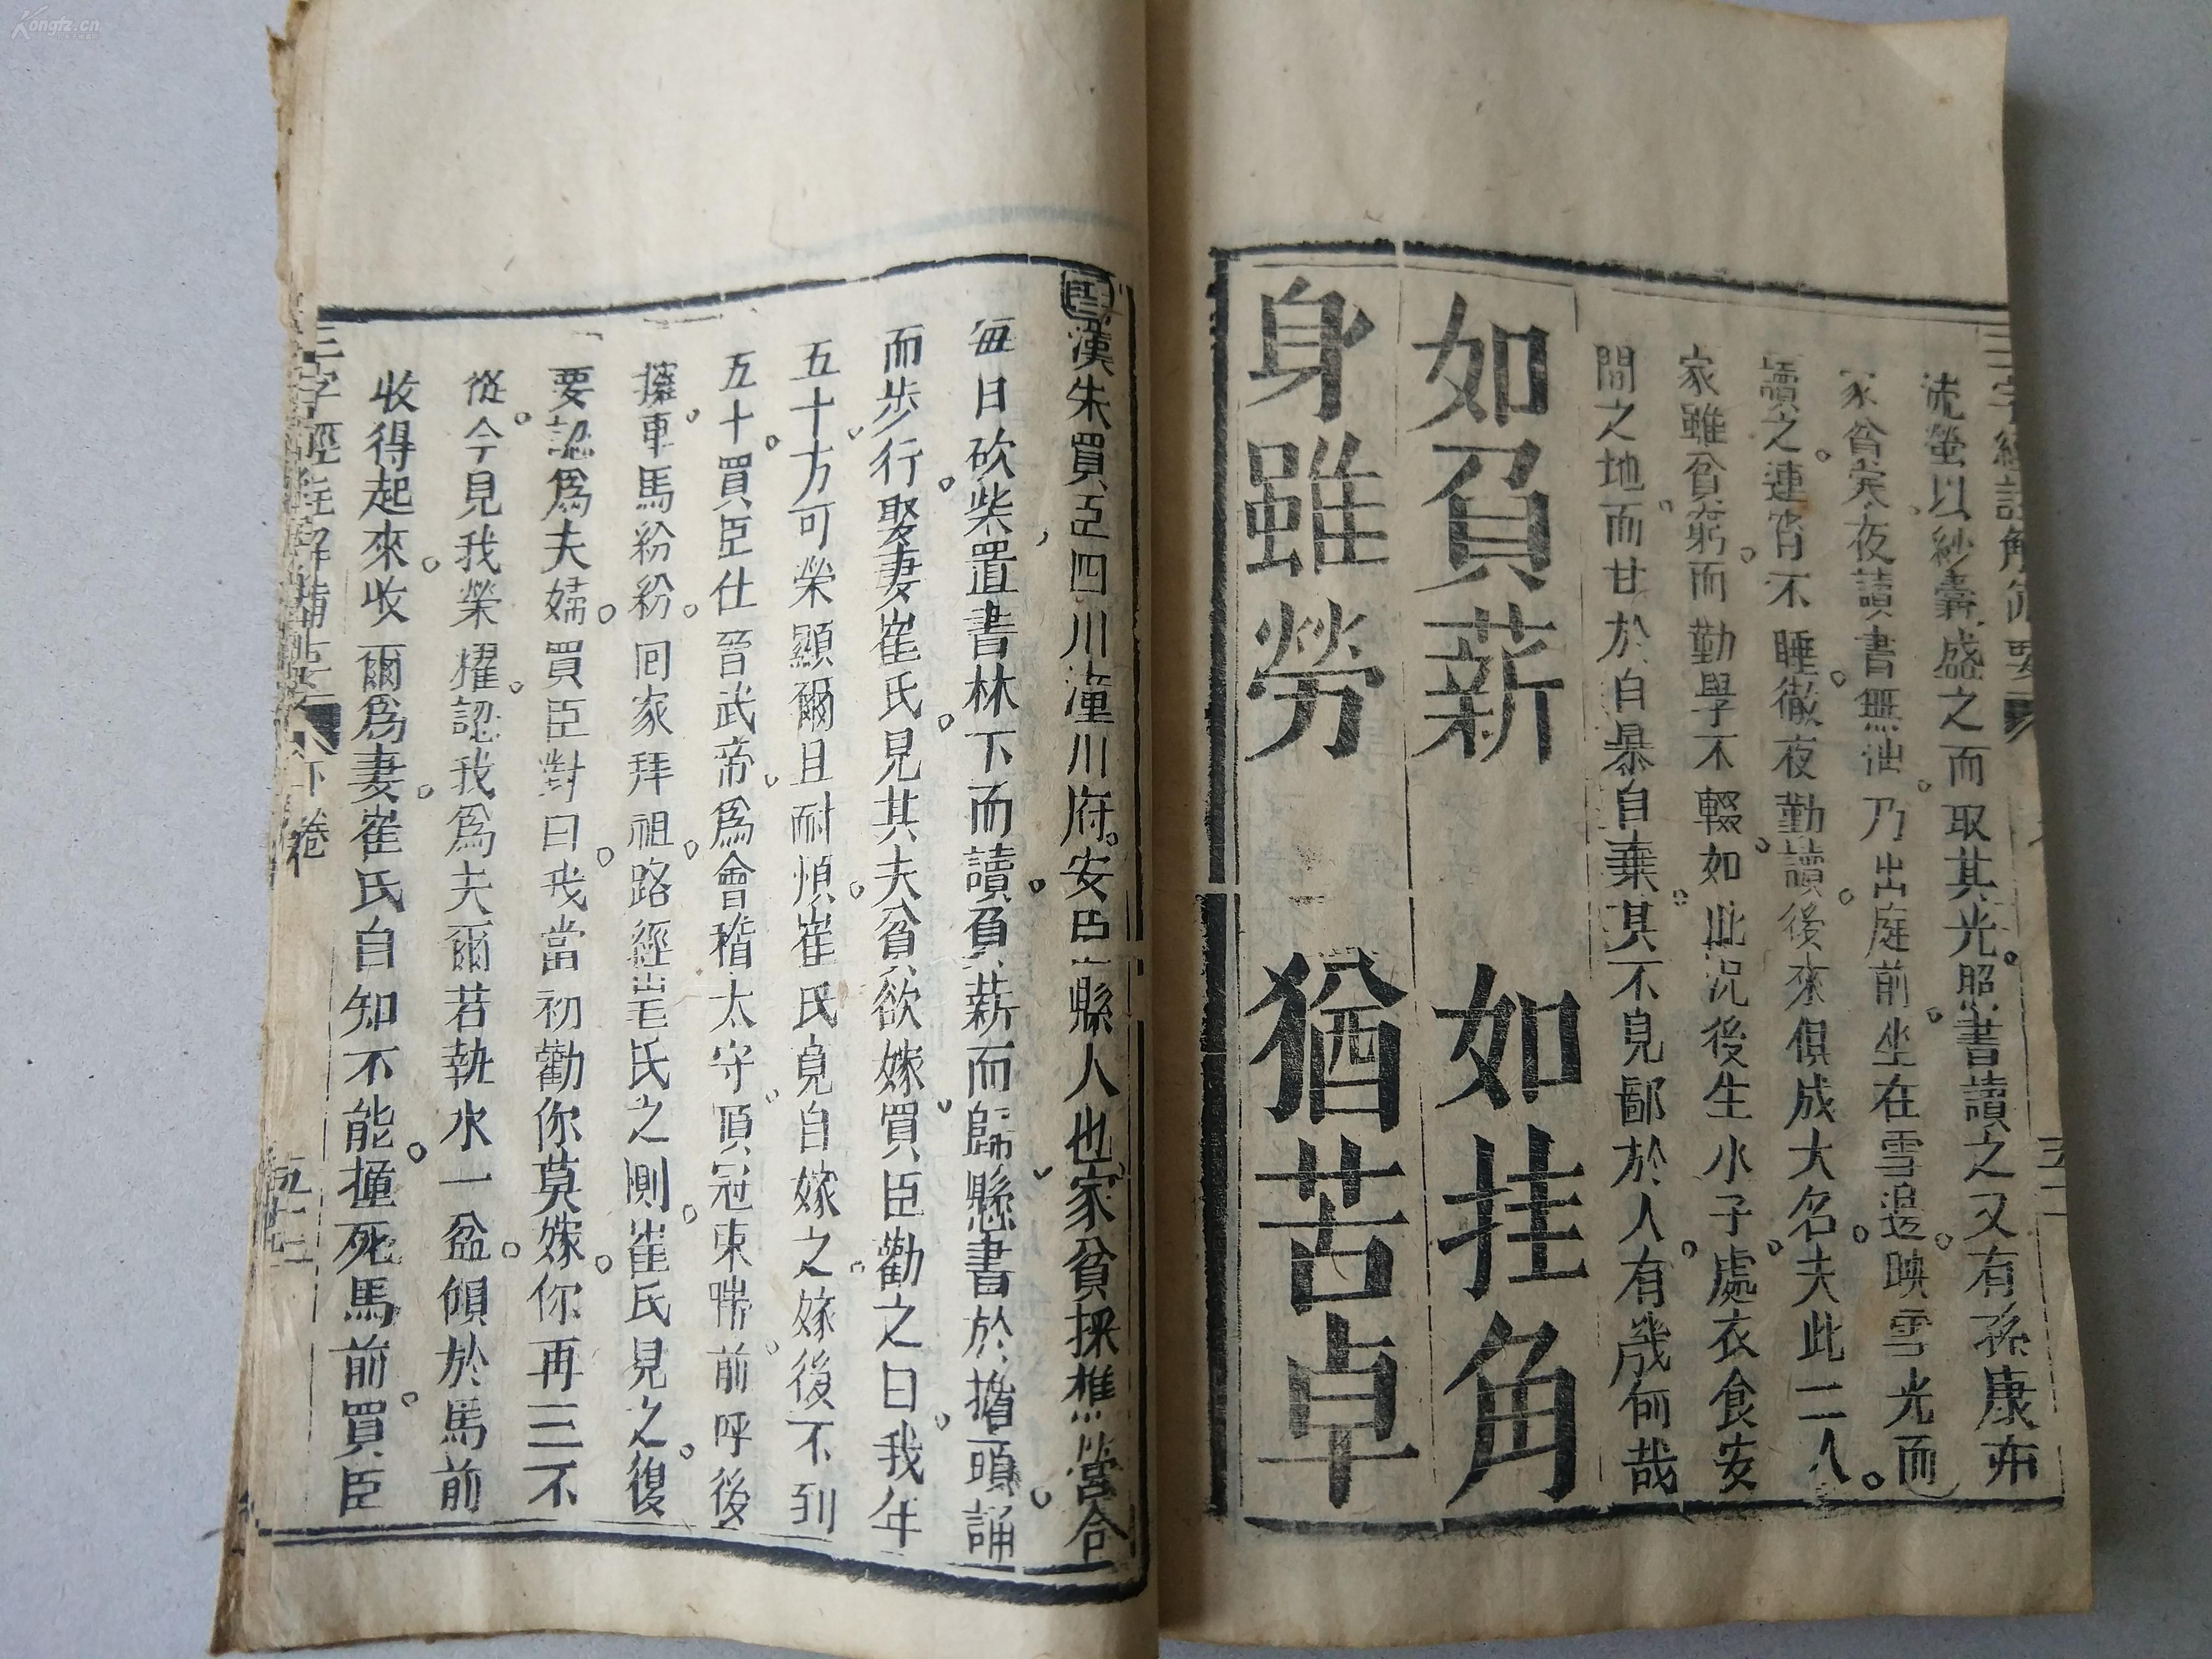 三字經註解備要
流螢以紗囊盛之而取其光照書讀之又有孫康亦
家貧矣夜讀書無油乃出庭前坐在雪邊映雪光而
讀之連宵不睡徹夜勤讀後來俱成大名夫此二人
家雖貧窮而勤學不輟如此况後生小子處衣食安
閒之地而甘於自暴自棄其不見鄙於人有幾何哉
如負薪 如挂角
身雖勞 猶苦卓
漢朱買臣四川潼川府安岳縣人也家貧採樵營合
每日砍柴置書林下而讀負薪而歸懸書於擔頭誦
而步行娶妻崔氏見其夫貧欲嫁買臣勸之曰我年
五十方可榮顯爾且耐煩崔氏竟自嫁之嫁後不到
五十買臣仕晉武帝爲會稽太守頂冠束帶前呼後
擁車馬紛紛回家拜祖路經毛氏之側崔氏見之復
要認爲夫婦買臣對曰我當初勸你莫嫁你再三不
從今見我榮耀認我爲夫爾若執水一盆傾於馬前
收得起來收爾爲妻崔氏自知不能撞死馬前買臣
三字經註解備要
下卷
五十二
Kongfz.cn